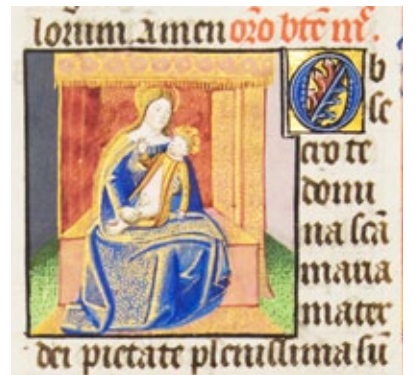 lorum Amen oro bte m̄.
Ob
se
cro te
domi
na scā
maria
mater
dei pietate plenissima sū